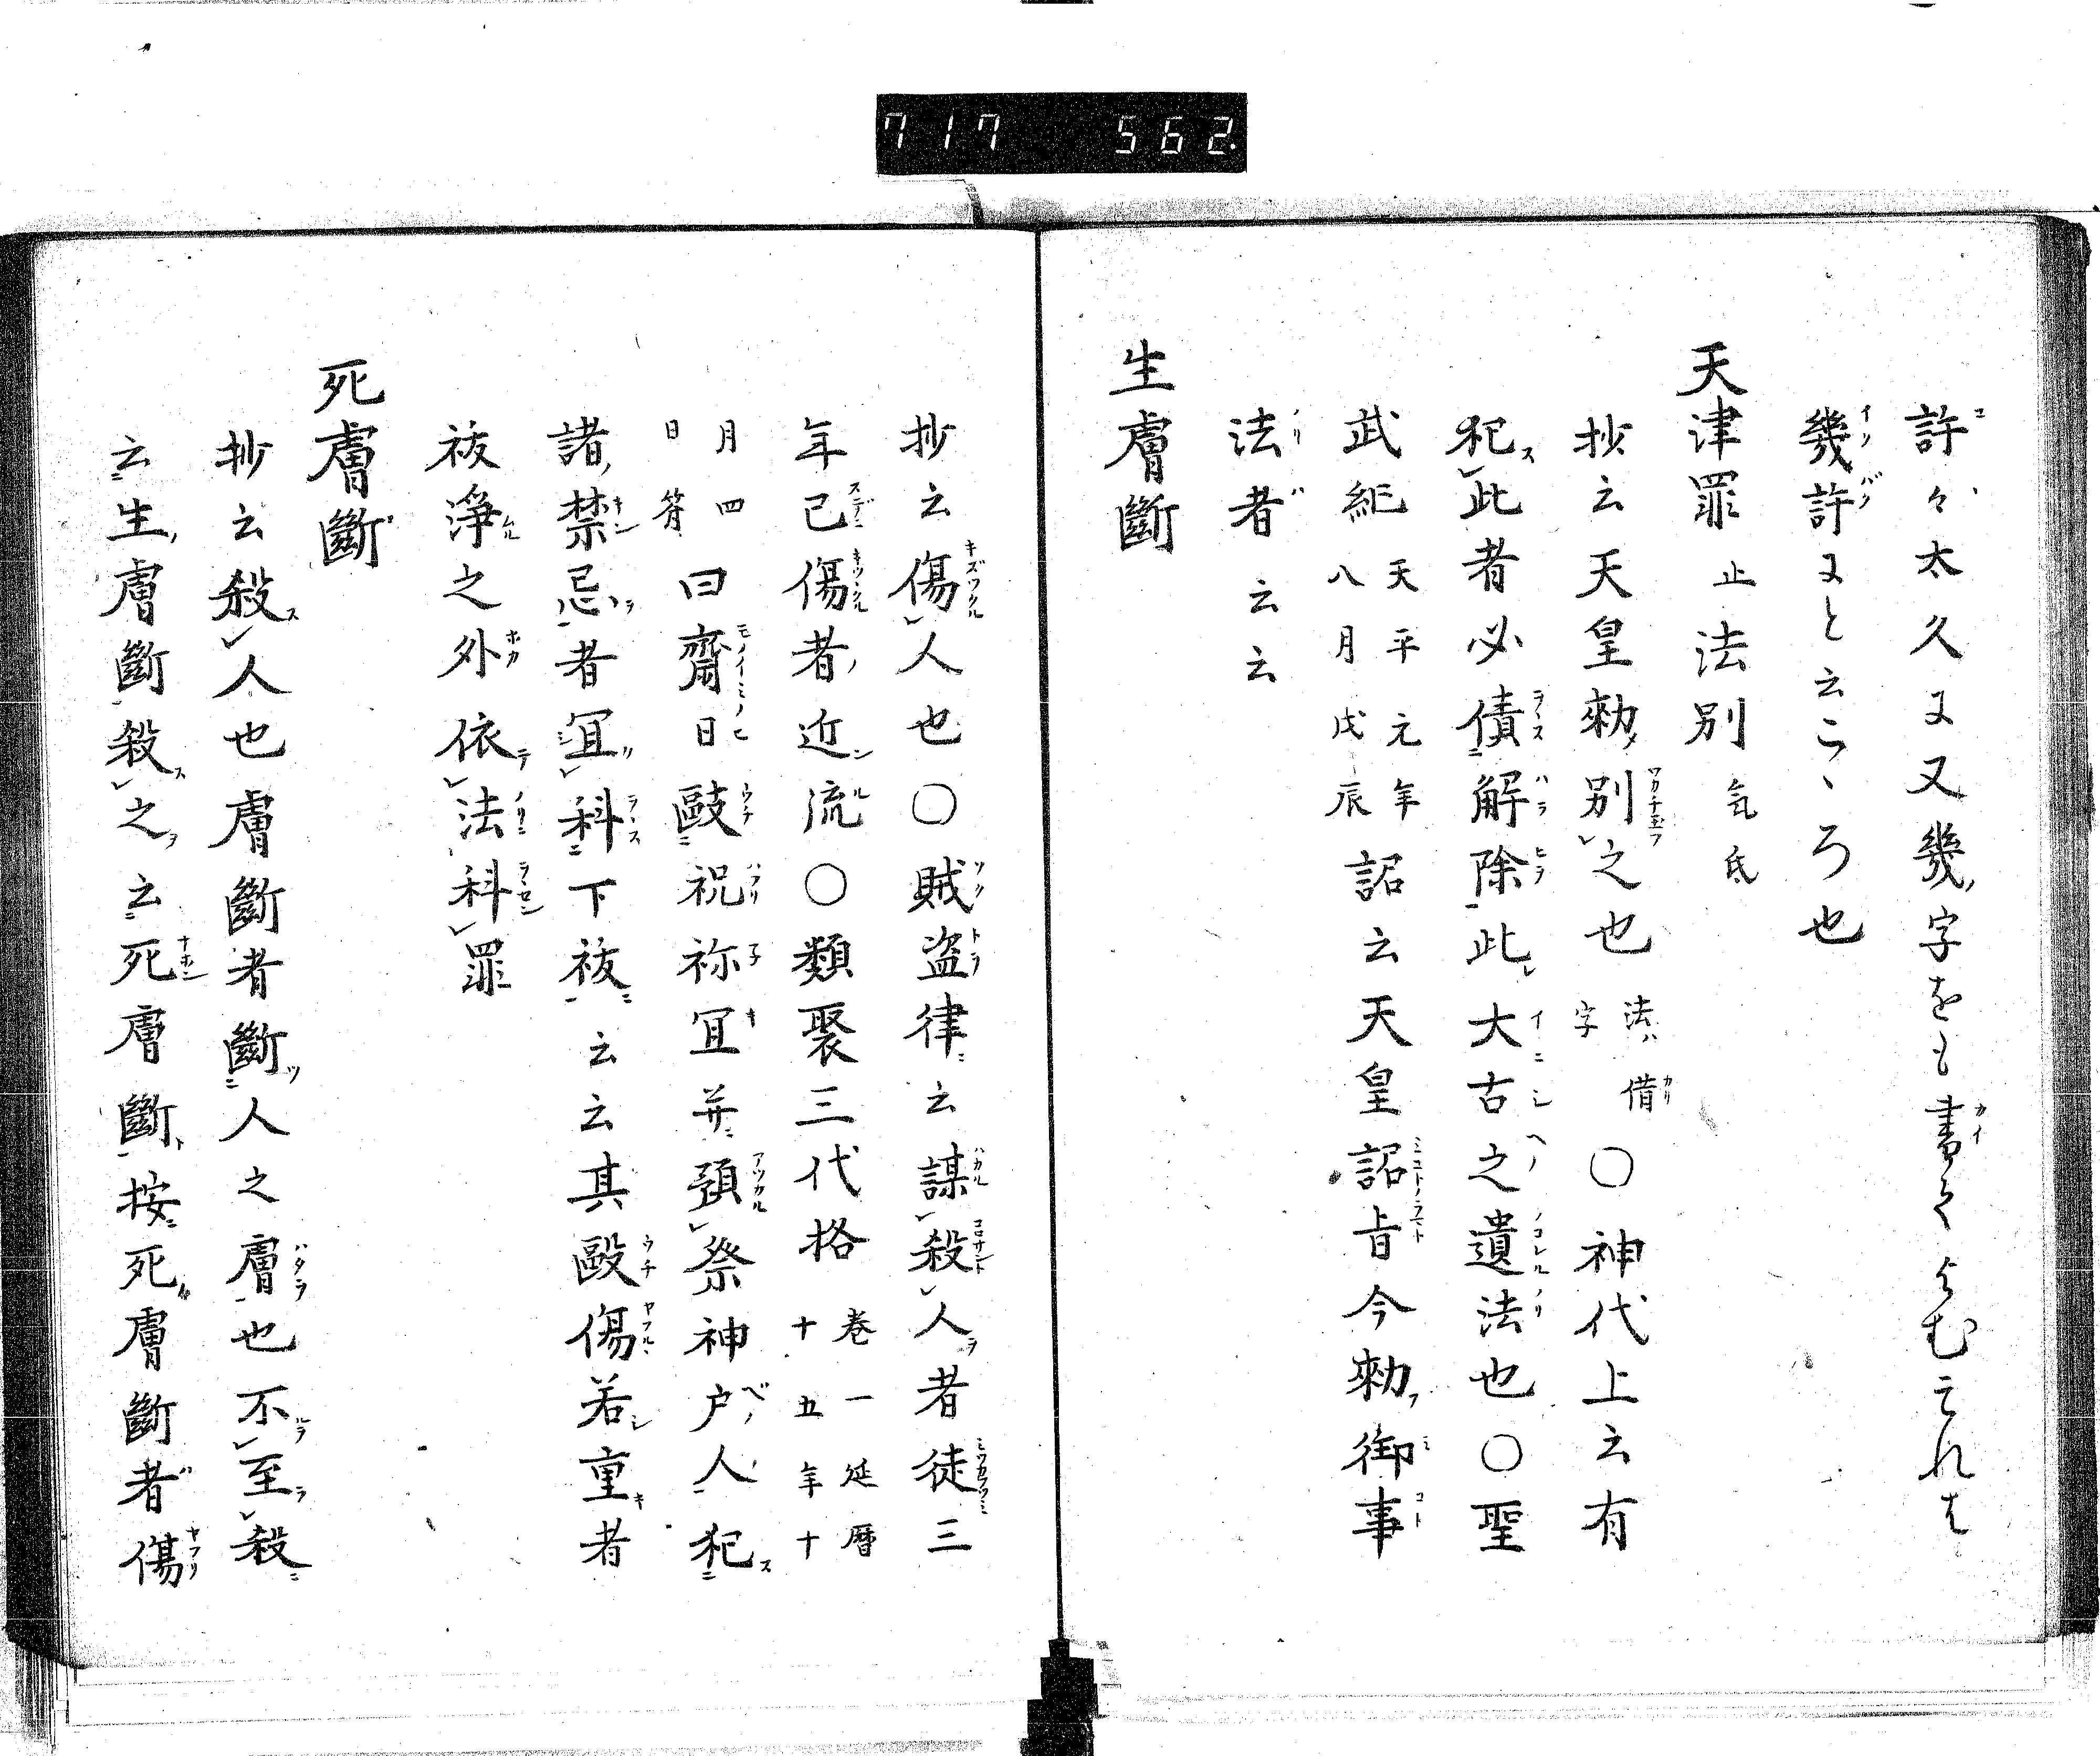 717 562
許々太久又又幾字をも書てよむされは
幾許又と云こゝろ也
天津罪止法別氣氐
抄云天皇勅別之也法ハ借字〇神代上云有
犯此者必債解除此大古之遺法也〇聖
武紀天平元年八月戊辰詔云天皇詔旨今勅御事
法者云云
生膚斷
抄云傷人也〇賊盗律云謀殺人者徒三
年已傷者近流〇類聚三代格卷一延暦十五年十
月四日符曰齋日毆祝祢冝并預祭神戸人犯
諸禁忌者冝科下祓云云其毆傷若重者
祓淨之外依法科罪
死膚斷
抄云殺人也膚斷者斷人之膚也不至殺
云生膚斷殺之云死膚斷按死膚斷者傷